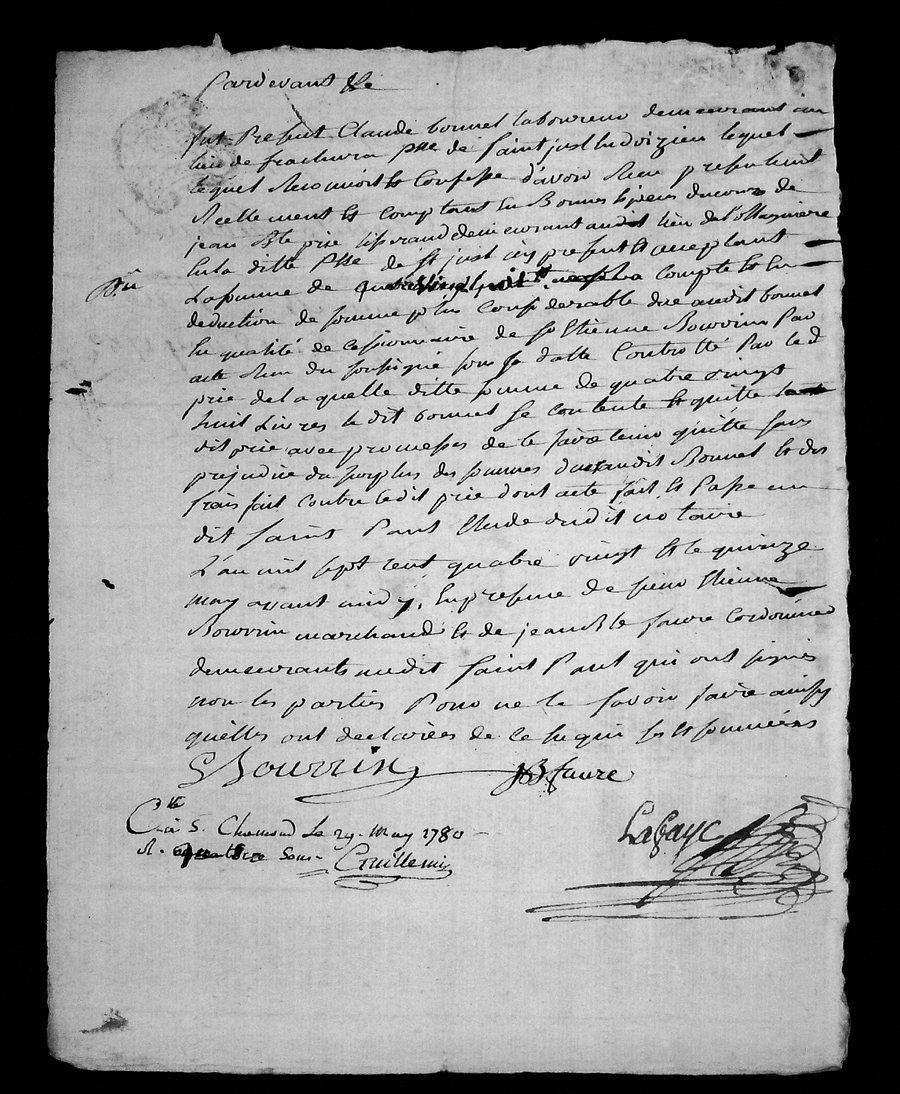 Pardevant &c
fut Present Claude bonnet laboureur demeurant au
lieu de frachura psse de Saint just Ludvizien lequel
lequel Reconnoit et Confesse d'avoir Reçu presentement
Reellement et comptant en Bonnes Especes du cours de
jean Bte prie tisserand demeurant audit lieu de
En la ditte Psse de st just icy present et acceptant
La somme de quatre Vingt huit a compte et En
deduction de somme plus considerable due audit bonnet
En qualité de cessionnaire de sr Etienne Bourrin Par
acte Reçu du soussigné sous Sa datte Controllé Par led
prie de la quelle ditte somme de quatre vingt
huit Livres le dit bonnet Se contente et quitte
dit prie avec promesses de le faire tenir quitte sans
prejudice du surplus des sommes dues audit Bonnet et des
frais fait contre ledit prie dont acte fait et Passé au
dit Saint Paul Etude dudit notaire
L'an mil sept cent quatre vingt et le quinze
may avant midy, En presence de sieur Etienne
Bourrin marchand et de jean Bte faure cordonnier
demeurants audit Saint Paul qui ont signés
non les parties Pour ne le Savoir faire ainsy
qu'elles ont declarées de ce Enquis et sommées
Bourrin JB faure
Cllé à S. Chamond Le 29. May 1780
R. quatorze sous. Guillemin
Lafaye